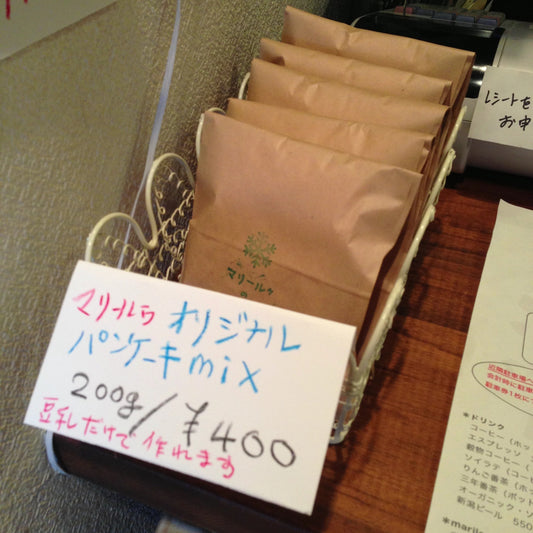 マリールゥ オリジナル
パンケーキmix
200g/¥400
豆乳だけで作れます
マリールゥ
の
レシートを
お申
近隣駐車場へ
会計時に駐車
駐車券1枚に
*ドリンク
コーヒー(ホッ
エスプレッソ
穀物コーヒー(
ソイラテ(コー
りんご番茶(ホ
三年番茶(ポット
オーガニック・ソ
新潟ビール 550
*marii